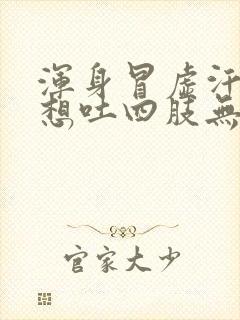 渾身冒虛汗
想吐四肢無
官家大少